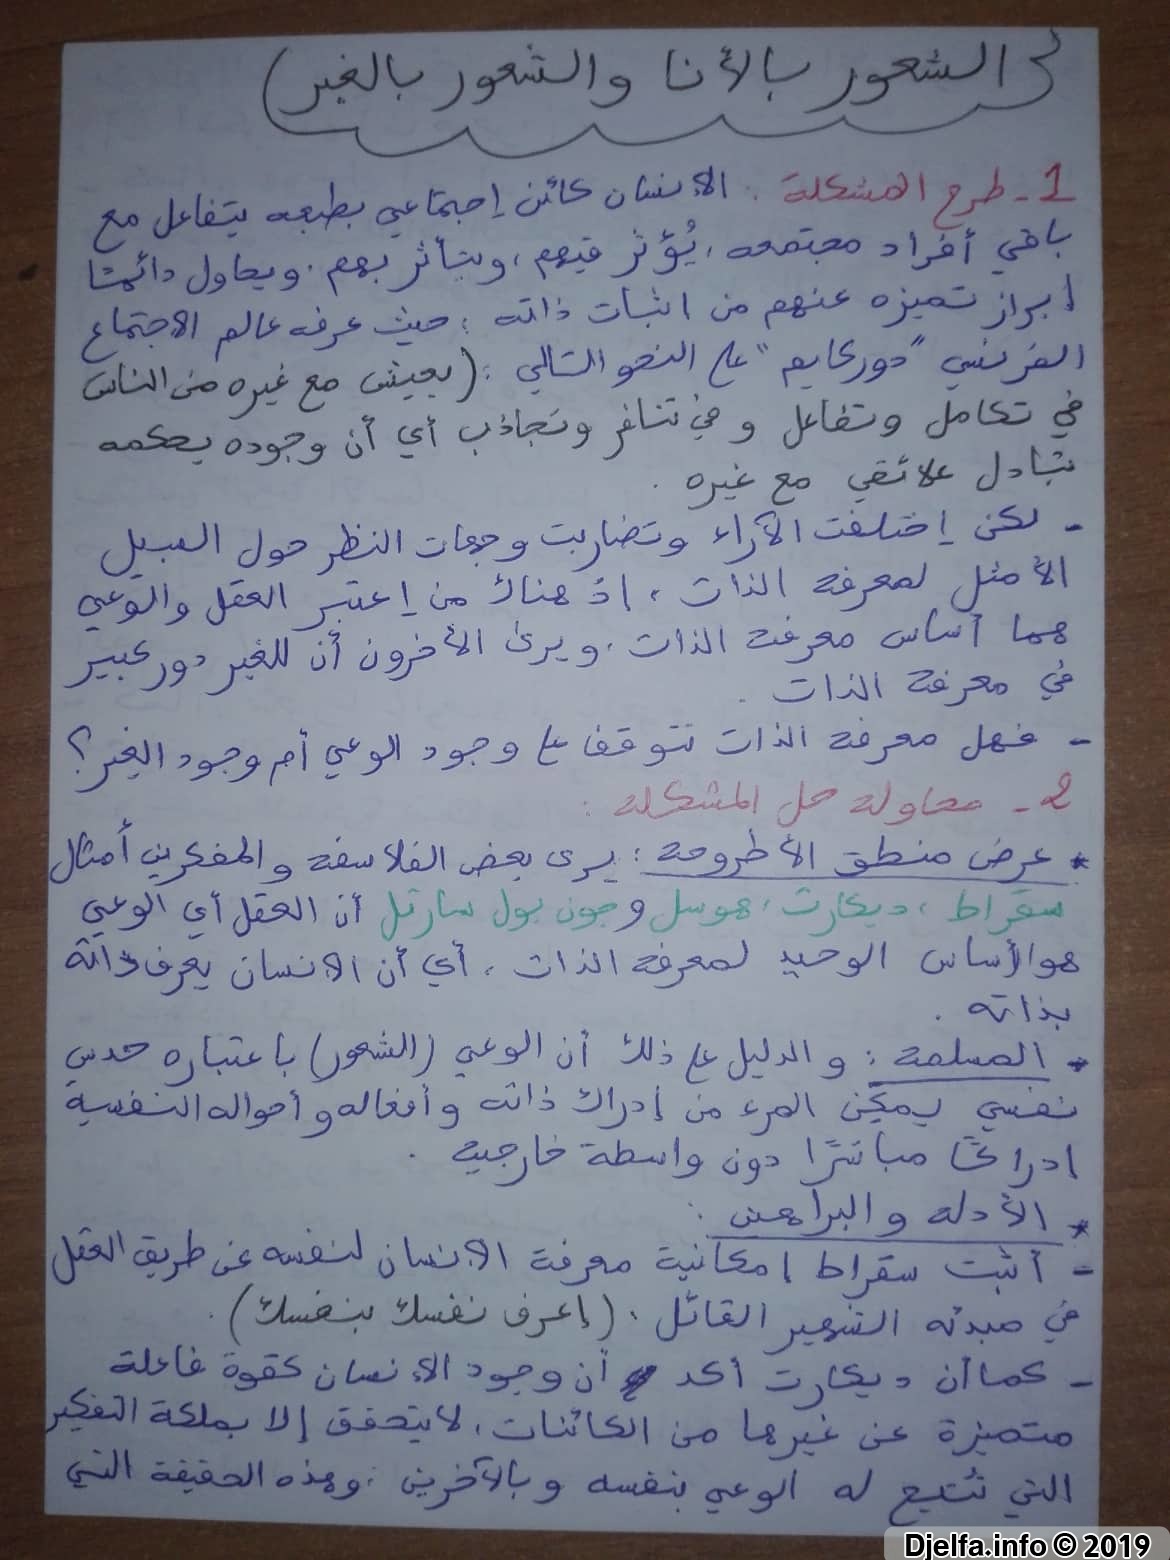 (الشعور بالأنا والشعور بالغير)
1- طرح المشكلة : الانسان كائن إجتماعي بطبعه يتفاعل مع
باقي أفراد مجتمعه ، يُؤثر فيهم ، ويتأثر بهم . ويحاول دائمًا
ابراز تميزه عنهم من اثبات ذاته ؛ حيث عرفه عالم الاجتماع
الفرنسي "دوركايم" على النحو التالي : (يعيش مع غيره من الناس
في تكامل وتفاعل وفي تنافر وتجاذب أي أن وجوده يحكمه
تبادل علائقي مع غيره .
- لكن إختلفت الآراء وتضاربت وجهات النظر حول السبيل
الأمثل لمعرفة الذات ، إذ هناك من إعتبر العقل والوعي
هما أساس معرفة الذات ، ويرى الأخرون أن للغير دور كبير
في معرفة الذات .
- فهل معرفة الذات تتوقف على وجود الوعي أم وجود الغير ؟
2- محاولة حل المشكلة :
* عرض منطق الأطروحة : يرى بعض الفلاسفة والمفكرين أمثال
سقراط ، ديكارت ، هوسل وجون بول سارتل أن العقل أي الوعي
هو الأساس الوحيد لمعرفة الذات ، أي أن الانسان يعرف ذاته
بذاته .
* المسلمة : والدليل على ذلك أن الوعي (الشعور) باعتباره حدس
نفسي يمكن المرء من إدراك ذاته وأفعاله وأحواله النفسية
ادراكًا مباشرًا دون واسطة خارجية .
* الأدلة والبراهين :
- أثبت سقراط امكانية معرفة الانسان لنفسه عن طريق العقل
في مبدئه الشهير القائل . (إعرف نفسك بنفسك) .
- كما أن ديكارت أكد أن وجود الانسان كقوة فاعلة
متميزة عن غيرها من الكائنات ، لا يتحقق إلا بملكة التفكير
التي تتيح له الوعي بنفسه وبالآخرين ، وهذه الحقيقة التي
Djelfa.info © 2019